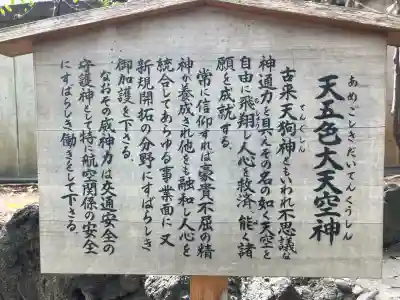 天五色大天空神
あめごしきだいてんくうしん
古来天狗神ともいわれ不思議な
てんくしん
神通力を具えその名の如く天空を
自由に飛翔し人心を救済し能く諸
願を成就する。
常に信仰すれば豪貴不屈の精
神が養成され他をも融和し人心を
統合してあらゆる事業面に又
新規開拓の分野にすばらしき
御加護を下さる。
なおその威神力は交通安全の
守護神として特に航空関係の安全
にすばらしき働きをして下さる。